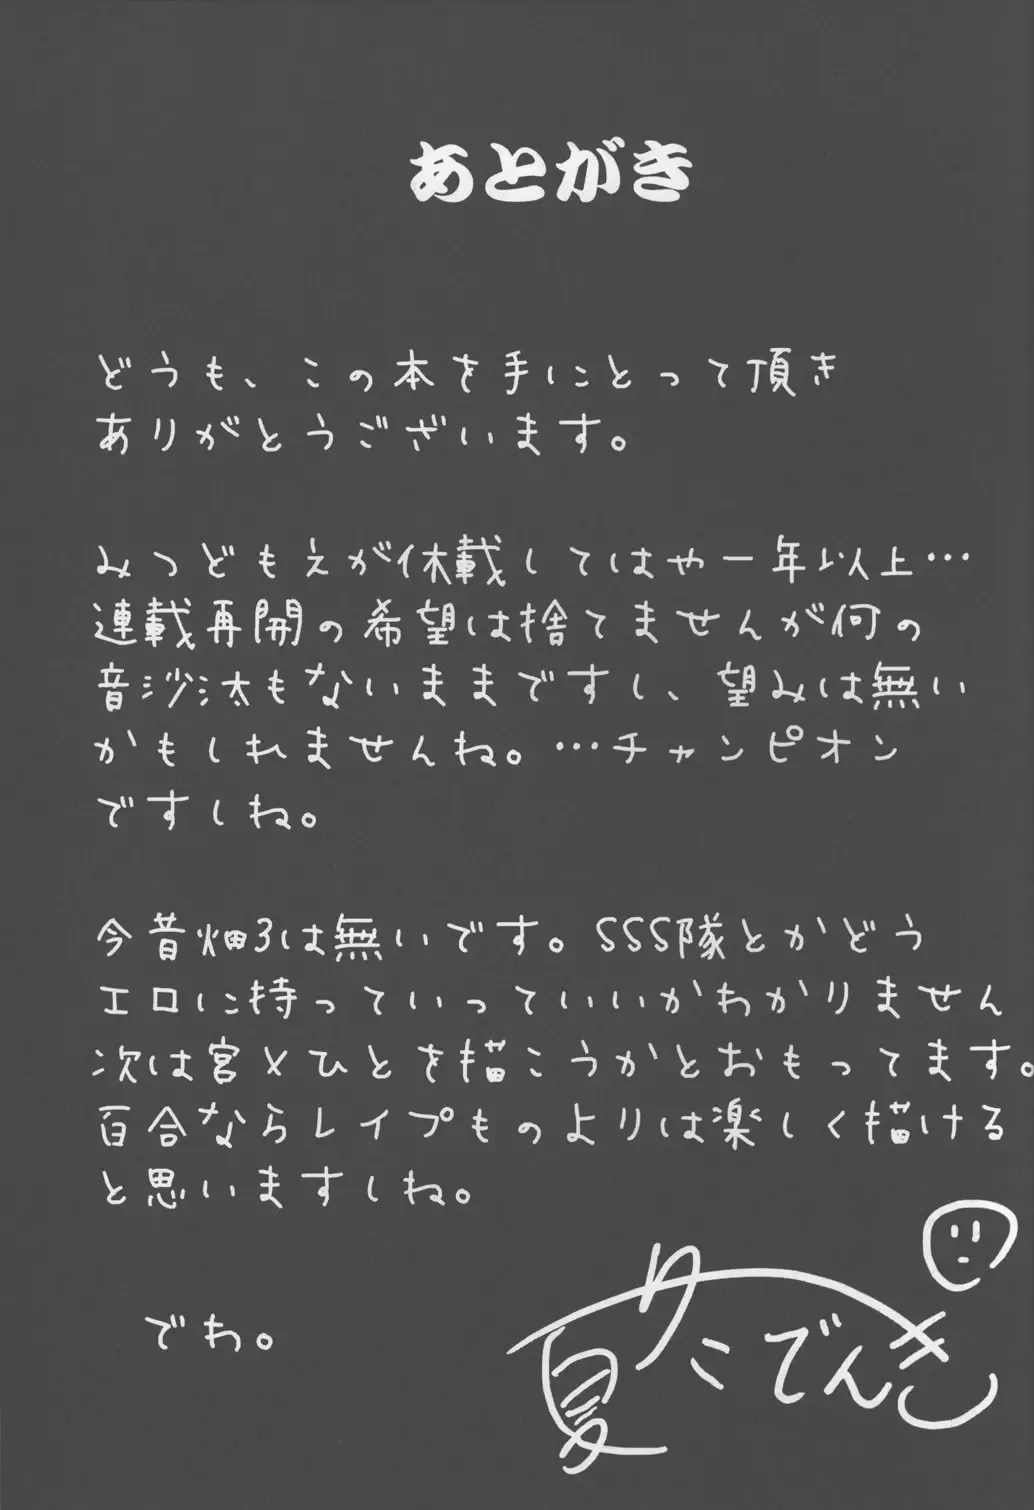 あとがき
どうも、この本を手にとって頂き
ありがとうございます。
みつどもえが休載してはや一年以上…
連載再開の希望は捨てませんが何の
音沙汰もないままですし、望みは無い
かもしれませんね。…チャンピオン
ですしね。
今昔畑3は無いです。SSS隊とかどう
エロに持っていっていいかわかりません
次は宮×ひとを描こうかとおもってます。
百合ならレイプものよりは楽しく描ける
と思いますしね。
でわ。
夏 こでんき